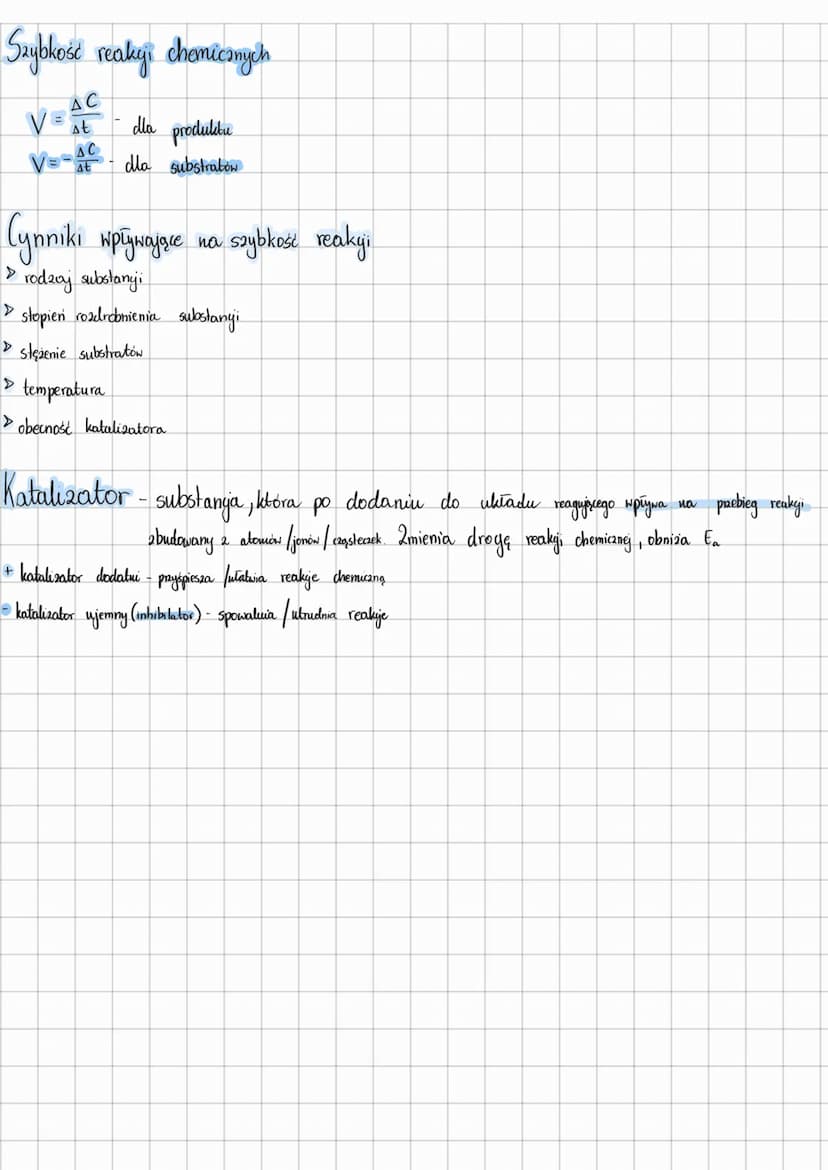 Szybkość reakcji chemicznych
V = ΔC/Δt - dla produktu
V = - ΔC/Δt - dla substratów
Cynniki wpływające na szybkość reakcji
> rodzaj substancji
> stopień rozdrobnienia substancji
> stężenie substratów
> temperatura
> obecność katalizatora
Katalizator - substancja, która po dodaniu do układu reagującego wpływa na przebieg reakcji
zbudowany z atomów/jonów/cząsteczek. Zmienia drogę reakcji chemicznej, obniża Ea
+ katalizator dodatni - przyśpiesza /ułatwia reakcje chemiczną
- katalizator ujemny (inhibilator) - spowalnia /utrudnia reakcje